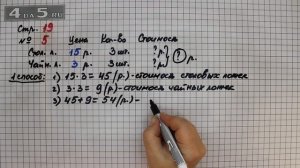 4DA5.RU
Стр. 19
№ 5 Цена Кол-во Стоимость
Стол. л. 15 р. 3 шт. ? р.
Чайн. л. 3 р. 3 шт. ? р. } ? р.
1 способ: 1) 15·3=45(р.)-стоимость столовых ложек
2) 3·3=9(р.)-стоимость чайных ложек
3) 45+9=54(р.)-